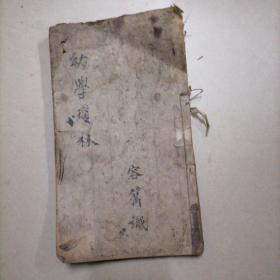 幼學瓊林
容篤識